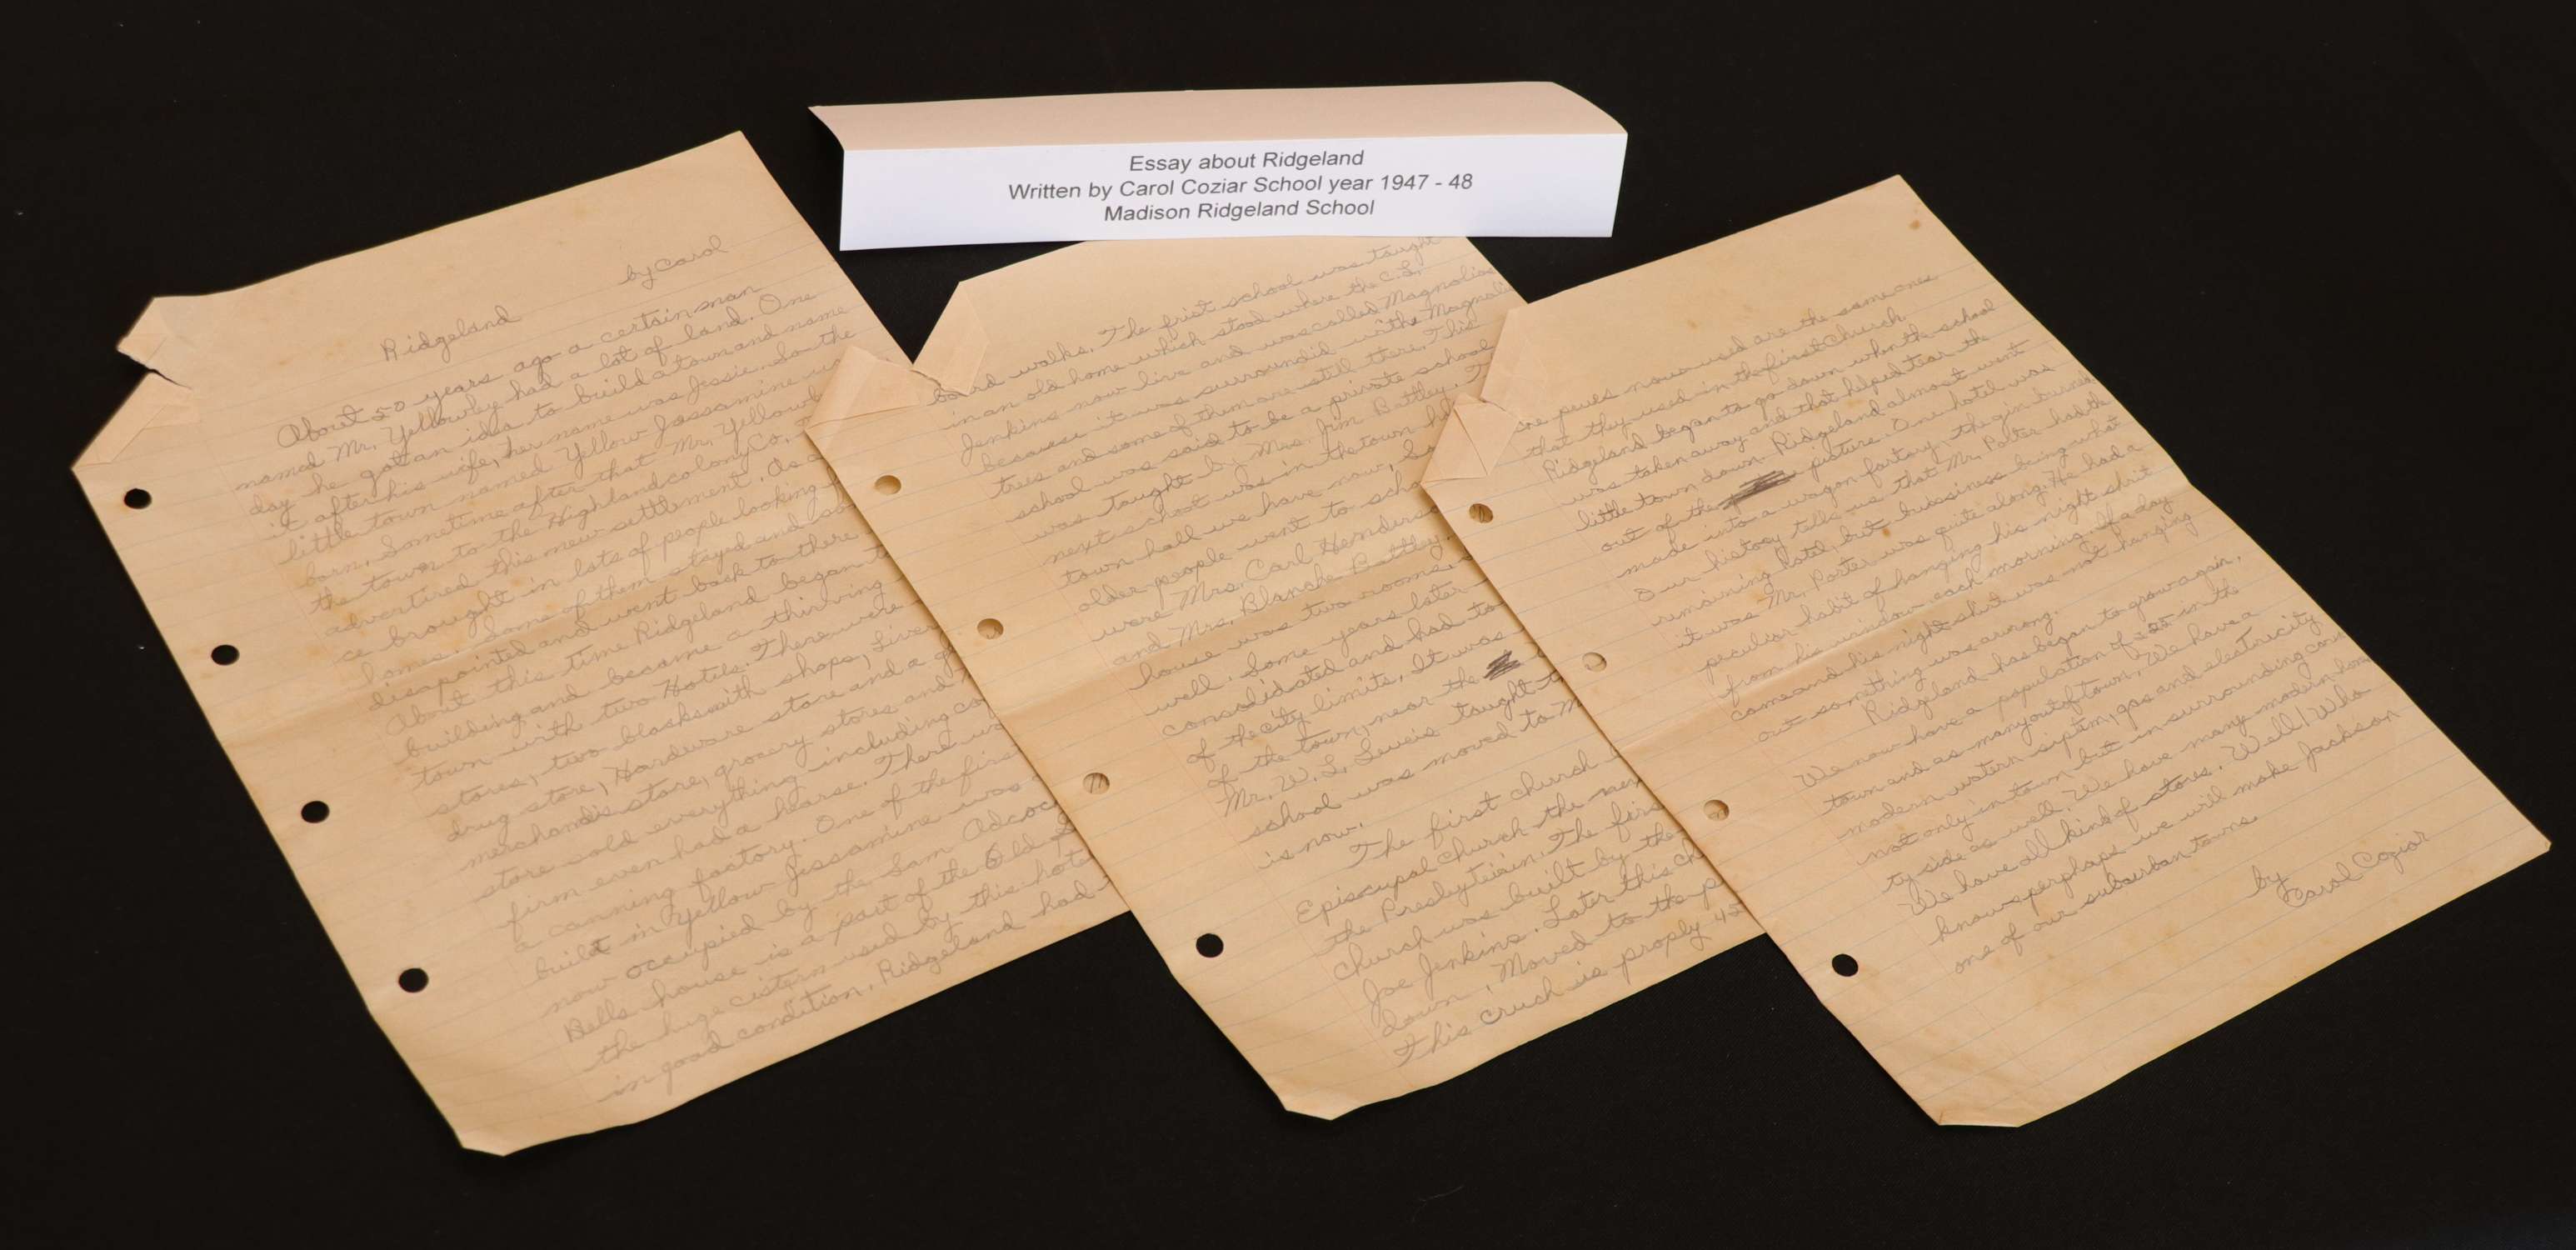 Essay about Ridgeland
Written by Carol Coziar School year 1947 - 48
Madison Ridgeland School
by Carol
Ridgeland
About 50 years ago a certain man
named Mr. Yellowley had a lot of land. One
day he got an idea to build a town and name
it after his wife, her name was Jessie. So the
little town named Yellow Jessamine was
born. Sometime after that Mr. Yellowl
the town to the Highland colony Co.
advertized this new settlment. As a
ce brought in lots of people looking
homes. Some of them stayed and
disapointed and went back to there
About this time Ridgeland began t
building and became a thirving
town with two Hotels. There were
stores, two blacksmith shops, Liver
drug store, Hardware store and a g
merchandis store, grocery stores and
store sold everything including co
firm even had a hearse. There wa
a canning factory. One of the firs
built in Yellow Jessamine was
now occupied by the Sam Adcoc
Bells house is a part of the Old
the huge cistern used by this hote
in good condition, Ridgeland had
board walks. The frist school was taught
in an old home which stood where the C.L.
Jenkins now live and was called Magnolias
because it was surroundid with Magnoli
trees and some of them are still there. This
school was said to be a private school
was taught by Mrs. Jim Battley. T
next school was in the town h
town hall we have now. So
older people went to scho
were Mrs. Carl Henderso
and Mrs. Blanche Battley.
house was two rooms.
well. Some years later
consolidated and had to
of the city limits, It was
of the town, near the
Mr. W. L. Lewis taught t
school was moved to M
is now.
The first church
Episcupal Church the nex
the Presbyteiain. The firs
Church was built by the
Joe Jenkins. Later this ch
down. Moved to the p
This cruch is proply 45
pewes now used are the same ones
that they used in the first Church
Ridgeland began to go down when the school
was taken away and that helped tear the
little town down. Ridgeland almost went
out of the picture. One hotel was
made into a wagon factory, the gin burned
Our history tells us that Mr. Porter had the
remaining hotel, but bussiness being what
it was Mr. Porter was quite along. He had a
peculiar habit of hanging his night shrit
from his window each morning. If a day
came and his night shirt was not hanging
out something was wrong.
Ridgeland has began to grow again.
We now have a population of 325 in the
town and as many out of town, We have a
modern watern siptem, gas and electricity
not only in town but in surrounding coun
ty side as well. We have many modern hom
We have all kind of stores. Well! Who
knows perphaps we will make Jackson
one of our suburban towns.
by
Carol Coziar